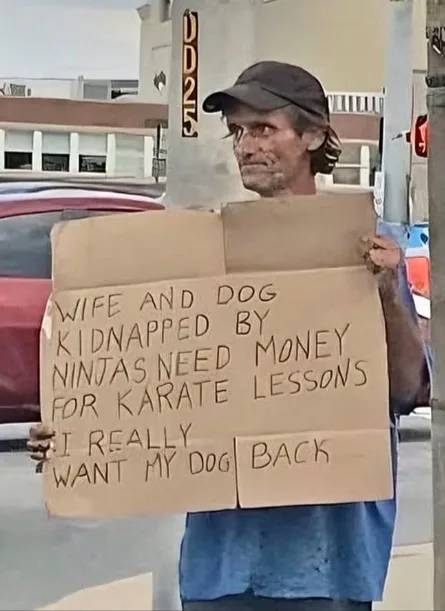 DD25
WIFE AND DOG
KIDNAPPED BY
NINJAS NEED MONEY
FOR KARATE LESSONS
I REALLY
WANT MY DOG BACK